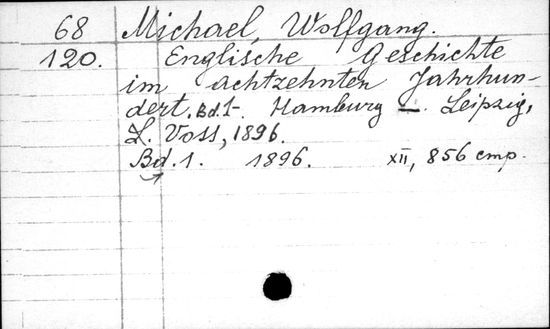 68 Michael, Wolfgang.
120. Englische Geschichte
im achtzehnten Jahrhun-
dert. Bd. 1-. Hamburg –. Leipzig,
L. Voss, 1896.
Bd. 1. 1896. XII, 856 стр.